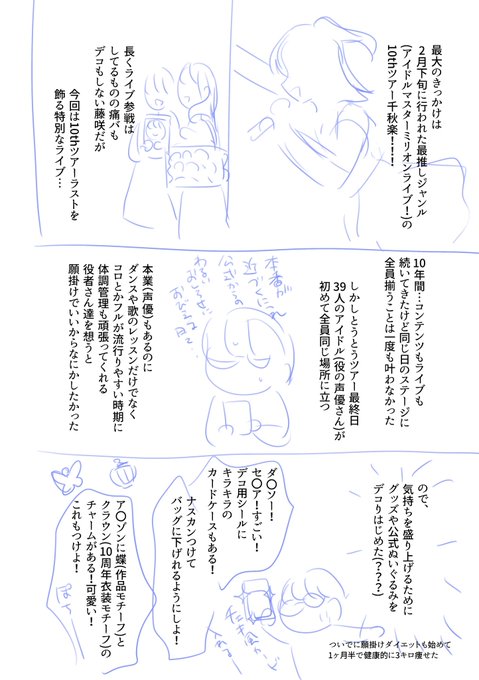 最大のきっかけは
2月下旬に行われた最推しジャンル
(アイドルマスターミリオンライブ！)の
10thツアー千秋楽！！！
長くライブ参戦は
してるものの痛バも
デコもしない藤咲だが
今回は10thツアーラストを
飾る特別なライブ…
10年間…コンテンツもライブも
続いてきたけど同じ日のステージに
全員揃うことは一度も叶わなかった
しかしとうとうツアー最終日
39人のアイドル(役の声優さん)が
初めて全員同じ場所に立つ
本番が
近づくにつれ
公式からの
本業(声優)もあるのに
ダンスや歌のレッスンだけでなく
コロとかフルが流行りやすい時期に
体調管理も頑張ってくれる
役者さん達を想うと
願掛けでいいからなにかしたかった
ので、
気持ちを盛り上げるために
グッズや公式ぬいぐるみを
デコりはじめた(？？？)
ついでに願掛けダイエットも始めて
1ヶ月半で健康的に3キロ痩せた
ダ〇ソー！
セ〇ア！すごい！
デコ用シールに
キラキラの
カードケースもある！
ナスカンつけて
バッグに下げれるようにしよ！
ア〇ゾンに蝶(作品モチーフ)と
クラウン(10周年衣装モチーフ)の
チャームがある！可愛い！
これもつけよ！